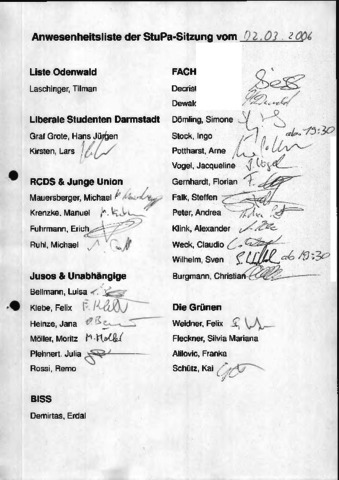 Anwesenheitsliste der StuPa-Sitzung vom 02.03.2006
Liste Odenwald
Laschinger, Tilman
Liberale Studenten Darmstadt
Graf Grote, Hans Jürgen
Kirsten, Lars
RCDS & Junge Union
Mauersberger, Michael
Krenzke, Manuel
Fuhrmann, Erich
Ruhl, Michael
Jusos & Unabhängige
Bellmann, Luisa
Klebe, Felix
Heinze, Jana
Möller, Moritz M. Möller
Plehnert, Julia
Rossi, Remo
BISS
Demirtas, Erdal
FACH
Decrist
Dewak
Dömling, Simone
Stock, Ingo ab 19:30
Pottharst, Arne
Vogel, Jacqueline
Gernhardt, Florian
Falk, Steffen
Peter, Andrea
Klink, Alexander
Weck, Claudio
Wilhelm, Sven ab 19:30
Burgmann, Christian
Die Grünen
Weidner, Felix
Fleckner, Silvia Mariana
Alilovic, Franka
Schütz, Kai